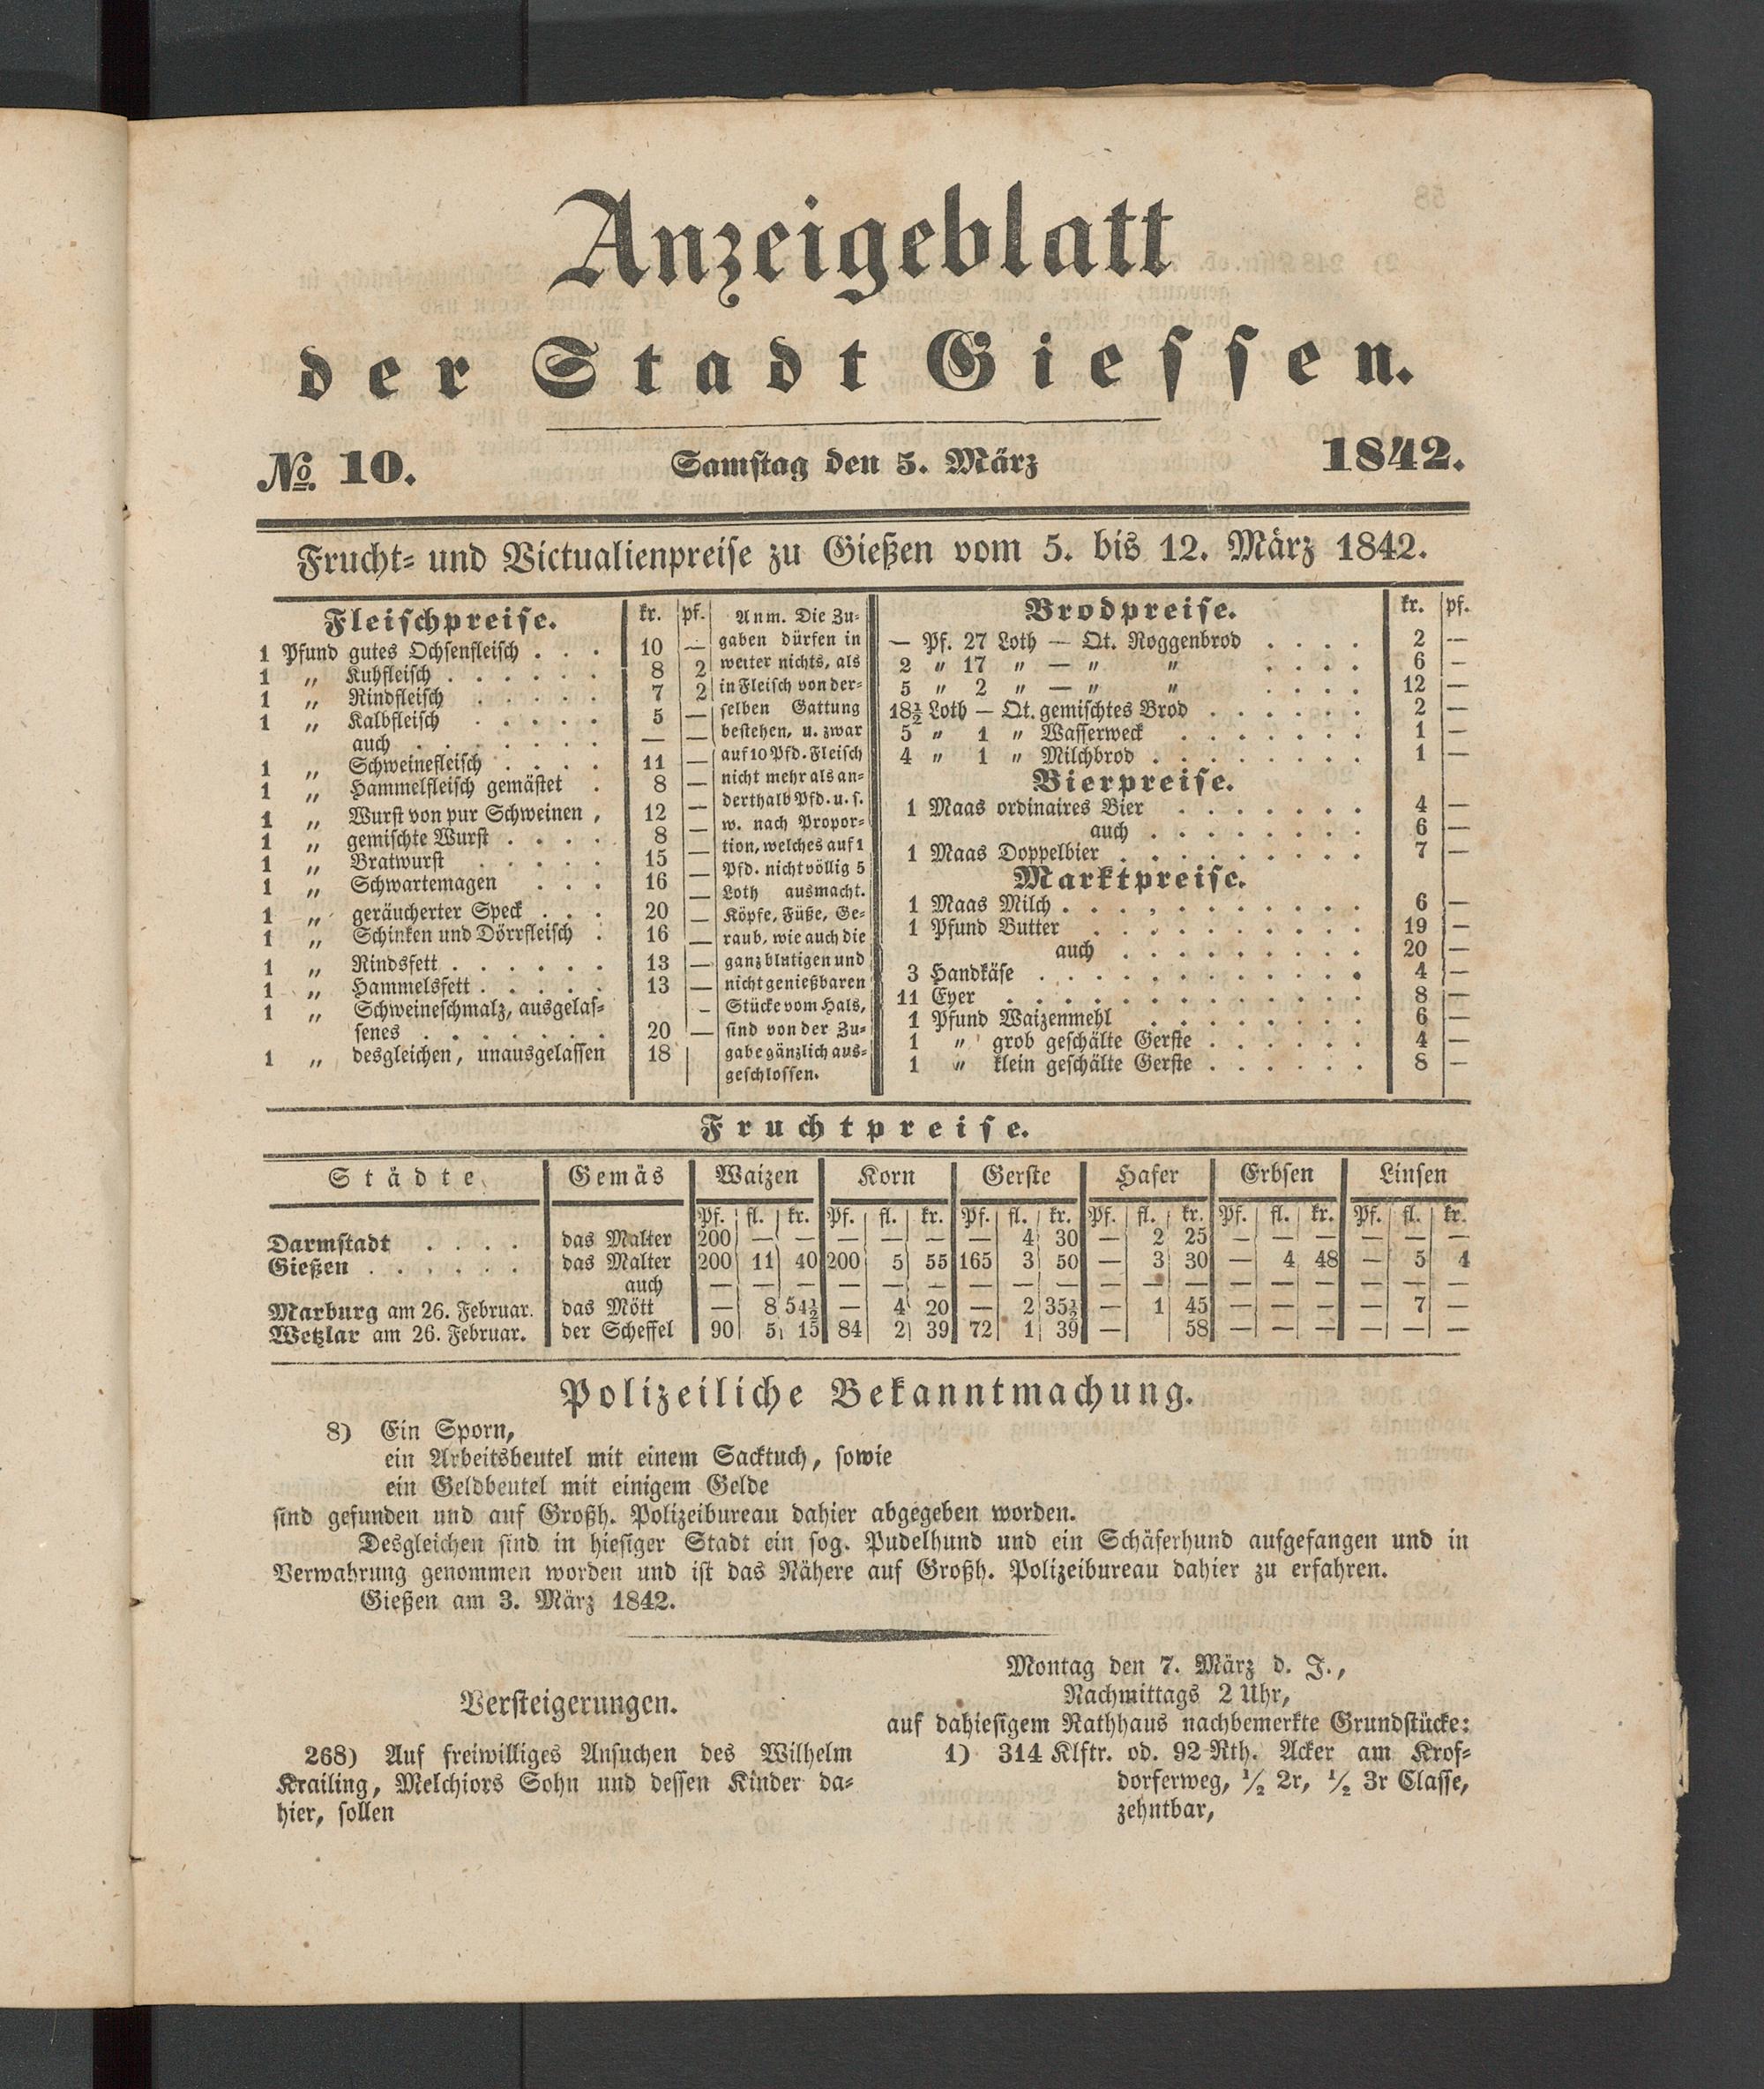 Anzeigeblatt
der Stadt Giessen.
No. 10. Samstag den 5. März 1842.
Frucht- und Victualienpreise zu Gießen vom 5. bis 12. März 1842.
Fleischpreise. kr. pf.
1 Pfund gutes Ochsenfleisch . . . 10 —
1 „ Kuhfleisch . . . . . . 8 2
1 „ Rindfleisch . . . . . 7 2
1 „ Kalbfleisch . . . . . 5 —
auch . . . . . . . — —
1 „ Schweinefleisch . . . . 11 —
1 „ Hammelfleisch gemästet . 8 —
1 „ Wurst von pur Schweinen , 12 —
1 „ gemischte Wurst . . . . 8 —
1 „ Bratwurst . . . . . 15 —
1 „ Schwartemagen . . . 16 —
1 „ geräucherter Speck . . . 20 —
1 „ Schinken und Dörrfleisch . 16 —
1 „ Rindsfett . . . . . . 13 —
1 „ Hammelsfett . . . . . 13 —
1 „ Schweineschmalz, ausgelas- –
senes . . . . . . . 20 —
1 „ desgleichen, unausgelassen 18
Anm. Die Zu-
gaben dürfen in
weiter nichts, als
in Fleisch von der-
selben Gattung
bestehen, u. zwar
auf 10 Pfd. Fleisch
nicht mehr als an-
derthalb Pfd. u. s.
w. nach Propor-
tion, welches auf 1
Pfd. nicht völlig 5
Loth ausmacht.
Köpfe, Füße, Ge-
raub, wie auch die
ganz blutigen und
nicht genießbaren
Stücke vom Hals,
sind von der Zu-
gabe gänzlich aus-
geschlossen.
Brodpreise. kr. pf.
— Pf. 27 Loth — Qt. Roggenbrod . . . . 2 —
2 „ 17 „ — „ „ . . . . 6 —
5 „ 2 „ — „ „ . . . . 12 —
18½ Loth — Qt. gemischtes Brod . . . . . . 2 —
5 „ 1 „ Wasserweck . . . . . . . 1 —
4 „ 1 „ Milchbrod . . . . . . . . 1 —
Bierpreise.
1 Maas ordinaires Bier . . . . . . . 4 —
auch . . . . . . . . 6 —
1 Maas Doppelbier . . . . . . . . . 7 —
Marktpreise.
1 Maas Milch . . . . . . . . . . . 6 —
1 Pfund Butter . . . . . . . . . . 19 —
auch . . . . . . . . . 20 —
3 Handkäse . . . . . . . . . . . . 4 —
11 Eyer . . . . . . . . . . . . . 8 —
1 Pfund Waizenmehl . . . . . . . . 6 —
1 „ grob geschälte Gerste . . . . . . 4 —
1 „ klein geschälte Gerste . . . . . . 8 —
Fruchtpreise.
Städte Gemäs Waizen Korn Gerste Hafer Erbsen Linsen
Pf. fl. kr. Pf. fl. kr. Pf. fl. kr. Pf. fl. kr. Pf. fl. kr. Pf. fl. kr.
Darmstadt . . . . das Malter 200 — — — — — — 4 30 — 2 25 — — — — — —
Gießen . . . . . . das Malter 200 11 40 200 5 55 165 3 50 — 3 30 — 4 48 — 5 4
auch — — — — — — — — — — — — — — — — — —
Marburg am 26. Februar. das Mött — 8 54½ — 4 20 — 2 35½ — 1 45 — — — — 7 —
Wetzlar am 26. Februar. der Scheffel 90 5 15 84 2 39 72 1 39 — 58 — — — — — —
Polizeiliche Bekanntmachung.
8) Ein Sporn,
ein Arbeitsbeutel mit einem Sacktuch, sowie
ein Geldbeutel mit einigem Gelde
sind gefunden und auf Großh. Polizeibureau dahier abgegeben worden.
Desgleichen sind in hiesiger Stadt ein sog. Pudelhund und ein Schäferhund aufgefangen und in
Verwahrung genommen worden und ist das Nähere auf Großh. Polizeibureau dahier zu erfahren.
Gießen am 3. März 1842.
Versteigerungen.
268) Auf freiwilliges Ansuchen des Wilhelm
Krailing, Melchiors Sohn und dessen Kinder da-
hier, sollen
Montag den 7. März d. J.,
Nachmittags 2 Uhr,
auf dahiesigem Rathhaus nachbemerkte Grundstücke:
1) 314 Klftr. od. 92 Rth. Acker am Krof-
dorferweg, ½ 2r, ½ 3r Classe,
zehntbar,